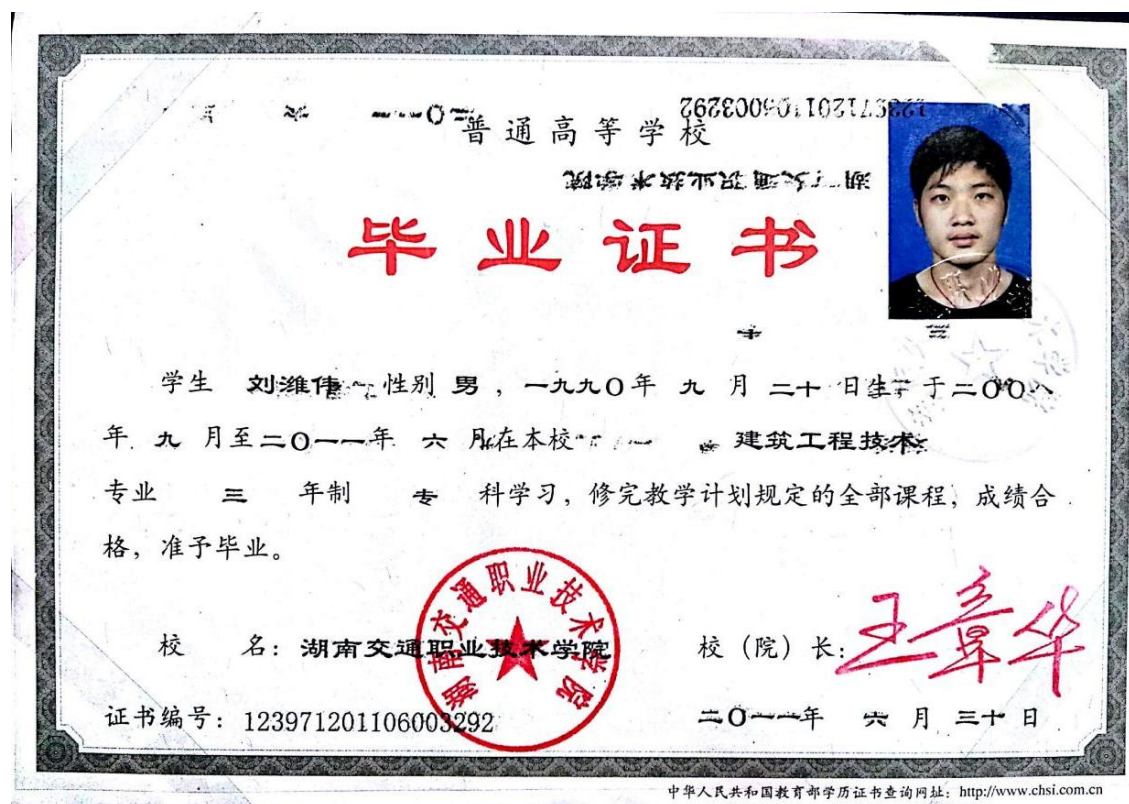 普通高等学校
毕业证书
学生 刘潍伟 性别 男，一九九〇年 九 月 二十 日生 于二〇〇八
年 九 月至二〇一一年 六 月在本校 建筑工程技术
专业 三 年制 专 科学习，修完教学计划规定的全部课程，成绩合
格，准予毕业。
湖南交通职业技术学院
校 名：湖南交通职业技术学院 校（院）长：王章华
证书编号：123971201106003292 二〇一一年 六 月 三十 日
中华人民共和国教育部学历证书查询网址：http://www.chsi.com.cn